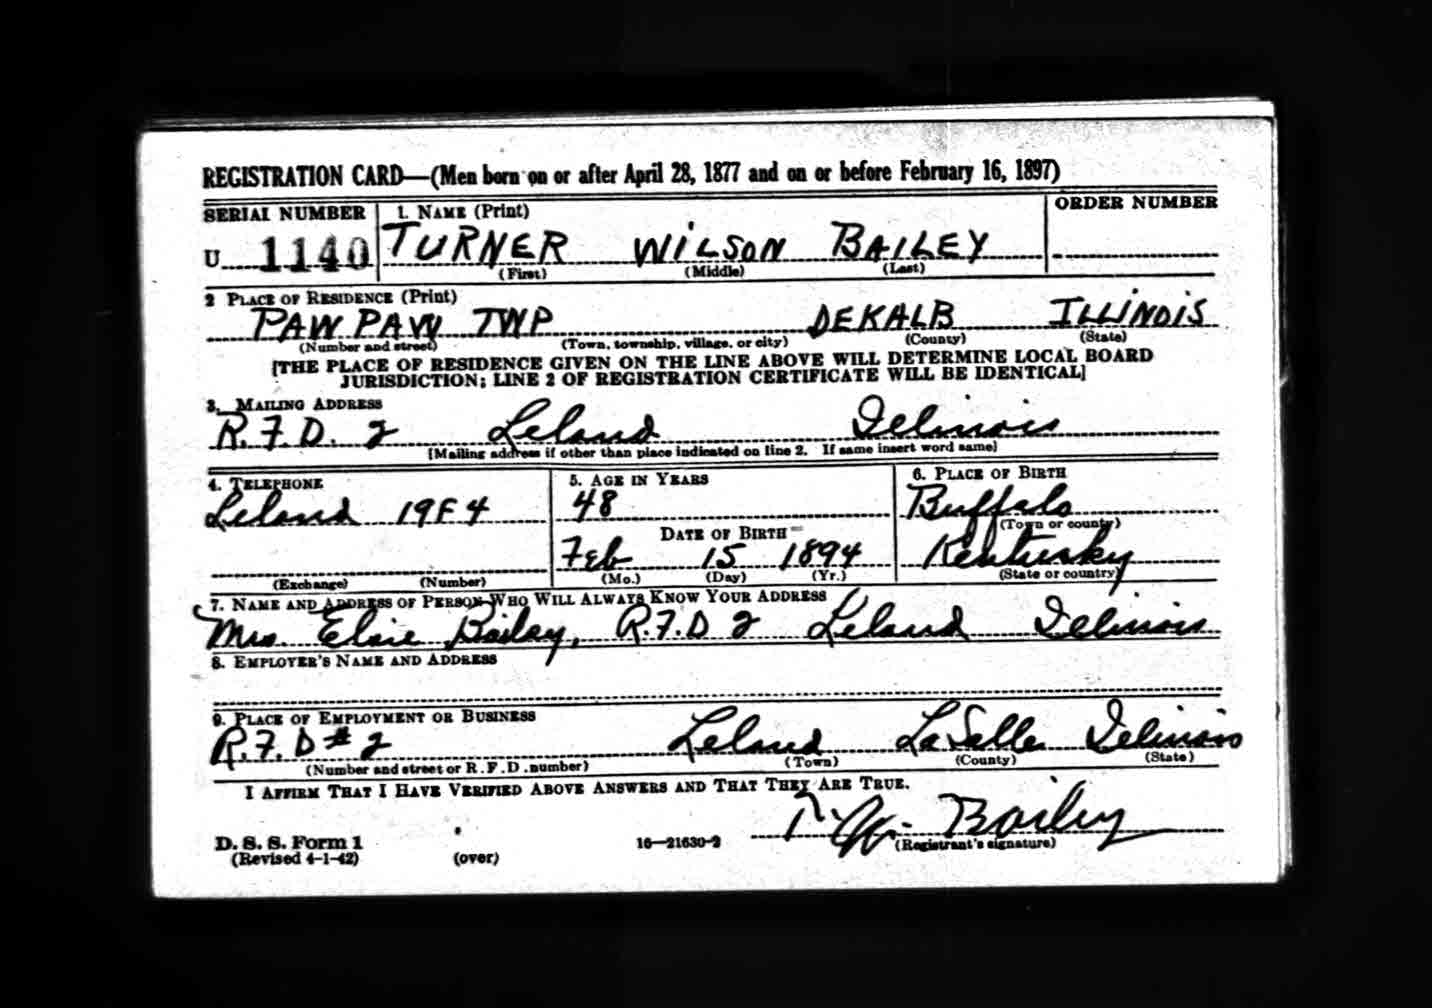 REGISTRATION CARD—(Men born on or after April 28, 1877 and on or before February 16, 1897)
SERIAL NUMBER 1. NAME (Print) ORDER NUMBER
U 1140 TURNER WILSON BAILEY
(First) (Middle) (Last)
2 PLACE OF RESIDENCE (Print)
PAW PAW TWP DEKALB ILLINOIS
(Number and street) (Town, township, village, or city) (County) (State)
[THE PLACE OF RESIDENCE GIVEN ON THE LINE ABOVE WILL DETERMINE LOCAL BOARD
JURISDICTION; LINE 2 OF REGISTRATION CERTIFICATE WILL BE IDENTICAL]
3. MAILING ADDRESS
R.F.D. 2 Leland Illinois
[Mailing address if other than place indicated on line 2. If same insert word same]
4. TELEPHONE 5. AGE IN YEARS 6. PLACE OF BIRTH
Leland 19F4 48 Buffalo
(Town or county)
DATE OF BIRTH
Feb 15 1894 Kentucky
(Exchange) (Number) (Mo.) (Day) (Yr.) (State or country)
7. NAME AND ADDRESS OF PERSON WHO WILL ALWAYS KNOW YOUR ADDRESS
Mrs. Elsie Bailey, R.F.D 2 Leland Illinois
8. EMPLOYER'S NAME AND ADDRESS
9. PLACE OF EMPLOYMENT OR BUSINESS
R.F.D # 2 Leland LaSalle Illinois
(Number and street or R.F.D. number) (Town) (County) (State)
I AFFIRM THAT I HAVE VERIFIED ABOVE ANSWERS AND THAT THEY ARE TRUE.
T.W. Bailey
D. S. S. Form 1
(Revised 4-1-42) (over) 16—21630-2 (Registrant's signature)